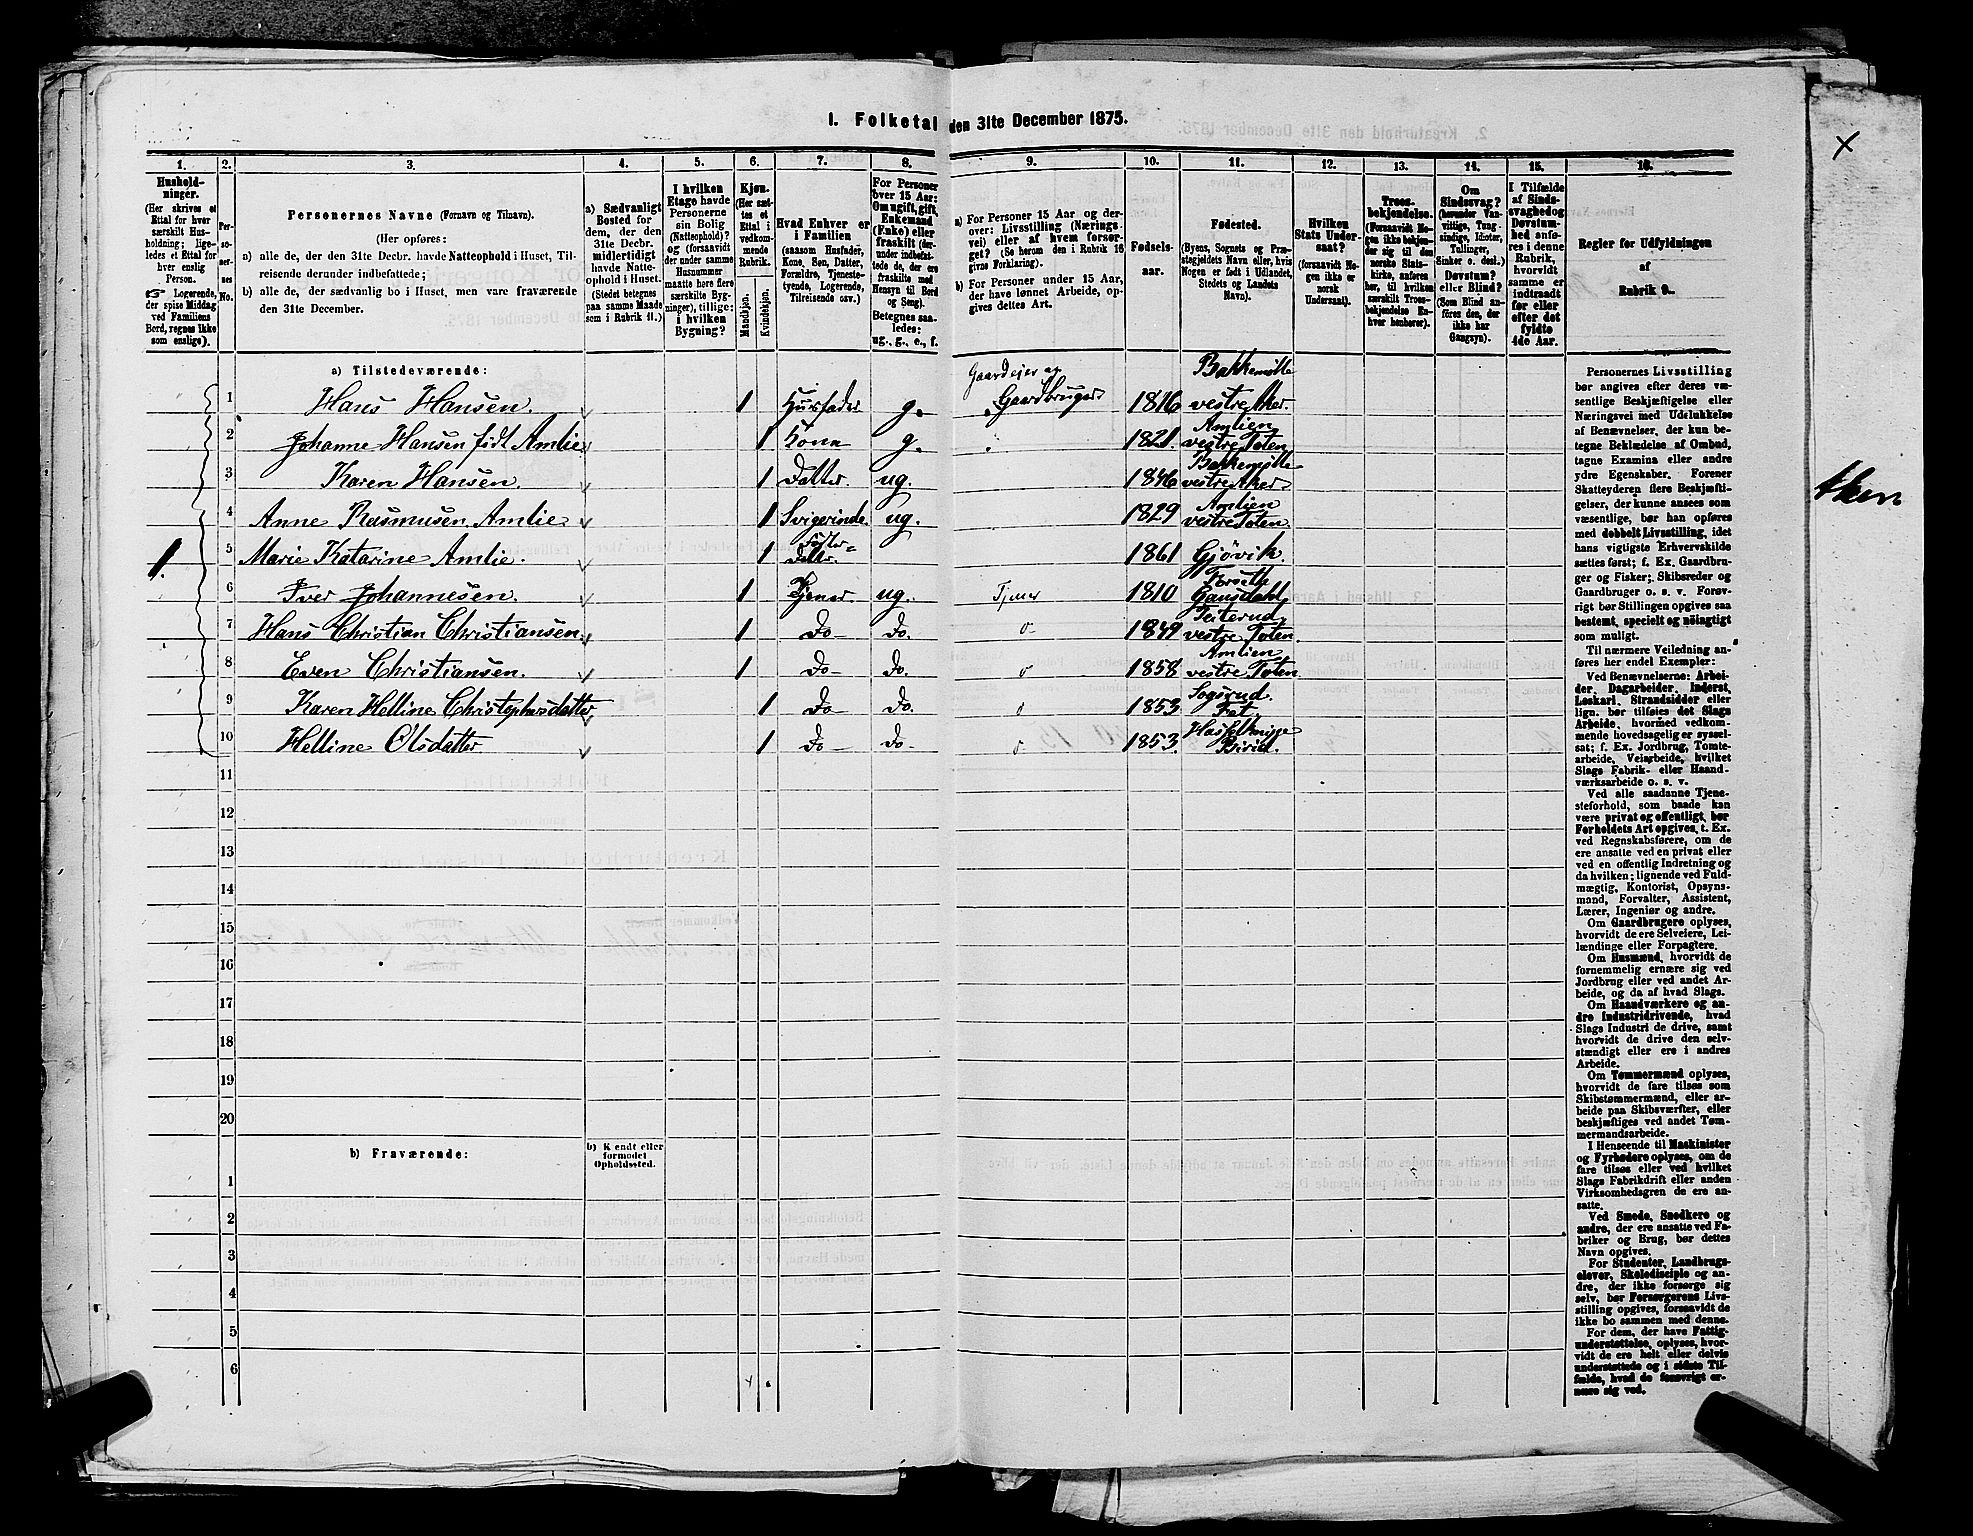 1. Folketal den 31te December 1875.
1. 2. 3. 4. 5. 6. 7. 8. 9. 10. 11. 12. 13. 14. 15. 16.
Hushold-
ninger.
(Her skrives et
Ettal for hver
særskilt Hus-
holdning; lige-
ledes et Ettal for
hver enslig
Person.
☞ Logerende,
der spise Middag
ved Familiens
Bord, regnes ikke
som enslige).
Per-
so-
ner-
nes
No.
Personernes Navne (Fornavn og Tilnavn).
(Her opføres:
a) alle de, der den 31te Decbr. havde Natteophold i Huset, Til-
reisende derunder indbefattede;
b) alle de, der sædvanlig bo i Huset, men vare fraværende
den 31te December.
a) Sædvanligt
Bosted for
dem, der den
31te Decbr.
midlertidigt
havde Natte-
ophold i Huset.
(Stedet betegnes
paa samme Maade
som i Rubrik 11.)
I hvilken
Etage havde
Personerne
sin Bolig
(Natteophold)?
og (forsaavidt
der under samme
Husnummer
maatte høre flere
særskilte Byg-
ninger), tillige:
i hvilken
Bygning?
Kjøn.
(Her sæt-
tes et
Ettal i
vedkom-
mende
Rubrik.
Mandkjøn.
Kvindekjøn.
Hvad Enhver er
i Familien
(saasom Husfader,
Kone, Søn, Datter,
Forældre, Tjeneste-
tyende, Logerende,
Tilreisende osv.)
For Personer
over 15 Aar:
Om ugift, gift,
Enkemand
(Enke) eller
fraskilt (der-
under indbefat-
tede de, der ere
fraskilte med
Hensyn til Bord
og Seng).
Betegnes saa-
ledes:
ug., g., e., f.
a) For Personer 15 Aar og der-
over: Livsstilling (Nærings-
vei) eller af hvem forsør-
get? (Se herom den i Rubrik 16
givne Forklaring).
b) For Personer under 15 Aar,
der have lønnet Arbeide, op-
gives dettes Art.
Fødsels-
aar.
Fødested.
(Byens, Sognets og Præ-
stegjeldets Navn eller, hvis
Nogen er født i Udlandet,
Stedets og Landets
Navn).
Hvilken
Stats Under-
saat?
(forsaavidt No-
gen ikke er
norsk
Undersaat).
Troes-
bekjendelse.
(Forsaavidt No-
gen ikke bekjen-
der sig til den
norske Stats-
kirke, anføres
her, til hvilken
særskilt Troes-
bekjendelse En-
hver henhører).
Om
Sindssvag?
(herunder Van-
vittige, Tung-
sindige, Idioter,
Tullinger,
Sinker o. desl.)
Døvstum?
eller Blind?
(Som Blind an-
føres den, der
ikke har
Gangsyn).
I Tilfælde
af Sinds-
svaghed og
Døvstum-
hed anfø-
res i denne
Rubrik,
hvorvidt
samme er
indtraadt
før eller
efter det
fyldte
4de Aar.
Regler for Udfyldningen
af
Rubrik 9.
a) Tilstedeværende:
1.
1 Hans Hansen. 1 Husfader g. Gaardeier og Gaardbruger 1816 Bakkemølle vestre Aker.
2 Johanne Hansen født Amlie 1 Kone g. 1821. Amlien vestre Toten
3 Karen Hansen. 1 Datter. ug. 1846 Bakkemølle vestre Aker
4 Anne Rasmusen Amlie 1 Svigerinde. ug. 1829 Amlien vestre Toten.
5 Marie Katarine Amlie. 1 Foster- Datter. 1861 Gjövik
6 Iver Johannesen. 1 Tjener. ug. Tjener 1810 Gausdahl
7 Hans Christian Christiansen. 1 Do Do. 1849 vestre Toten.
8 Even Christiansen. 1 Do Do. 1858 Amlien vestre Toten
9 Karen Helline Christophersdatter 1 Do Do. 1853 Sogsrud. Fet.
10 Helline Olsdatter 1 Do Do. 1853. Birid.
11
12
13
14
15
16
17
18
19
20
b) Fraværende:
b) Kjendt eller
formodet
Opholdssted.
1
2
3
4
5
6
Personernes Livsstilling
bør angives efter deres væ-
sentlige Beskjæftigelse eller
Næringsvei med Udelukkelse
af Benævnelser, der kun be-
tegne Beklædelse af Ombud,
tagne Examina eller andre
ydre Egenskaber. Forener
Skatteyderen flere Beskjæfti-
gelser, der kunne ansees som
væsentlige, bør han opføres
med dobbelt Livsstilling, idet
hans vigtigste Erhvervskilde
sættes først; f. Ex. Gaardbru-
ger og Fisker; Skibsreder og
Gaardbruger o. s. v. Forøv-
rigt bør Stillingen opgives saa
bestemt, specielt og nøiagtigt
som muligt.
Til nærmere Veiledning an-
føres her endel Exempler:
Ved Benævnelserne: Arbei-
der, Dagarbeider, Inderst,
Løskarl, Strandsidder eller
lign. bør tilføies det Slags
Arbeide, hvormed vedkom-
mende hovedsagelig er syssel-
sat; f. Ex. Jordbrug, Tomte-
arbeide, Veiarbeide, hvilket
Slags Fabrik- eller Haand-
værksarbeide o. s. v.
Ved alle saadanne Tjene-
steforhold, som baade kan
være privat og offentligt, bør
Forholdets Art opgives, t. Ex.
ved Regnskabsførere, om de
ere ansatte ved en privat eller
ved en offentlig Indretning og
da hvilken; lignende ved Fuld-
mægtig, Kontorist, Opsyns-
mand, Forvalter, Assistent,
Lærer, Ingeniør og andre.
Om Gaardbrugere oplyses,
hvorvidt de ere Selveiere, Lei-
lændinge eller Forpagtere.
Om Husmænd, hvorvidt de
fornemmelig ernære sig ved
Jordbrug eller ved andet Ar-
beide, og da af hvad Slags.
Om Haandværkere og an-
dre Industridrivende, hvad
Slags Industri de drive, samt
hvorvidt de drive den selv-
stændigt eller ere i andres
Arbeide.
Om Tømmermænd oplyses,
hvorvidt de fare tilsøs som
Skibstømmermænd, eller ar-
beide paa Skibsværfter, eller
beskjæftiges ved andet Tøm-
mermandsarbeide.
I Henseende til Maskinister
og Fyrbødere oplyses, om de
fare tilsøs eller ved hvilket
Slags Fabrikdrift eller anden
Virksomhedsgren de ere an-
satte.
Ved Smede, Snedkere og
andre, der ere ansatte ved Fa-
briker og Brug, bør dettes
Navn opgives.
For Studenter, Landbrugs-
elever, Skoledisciple og an-
dre, der ikke forsørge sig
selv, bør Forsørgerens Livs-
stilling opgives, forsaavidt de
ikke bo sammen med denne.
For dem, der have Fattig-
understøttelse, oplyses, hvor-
vidt de ere helt eller delvis
understøttede og i sidste Til-
fælde, hvad de forøvrigt er-
nære sig ved.